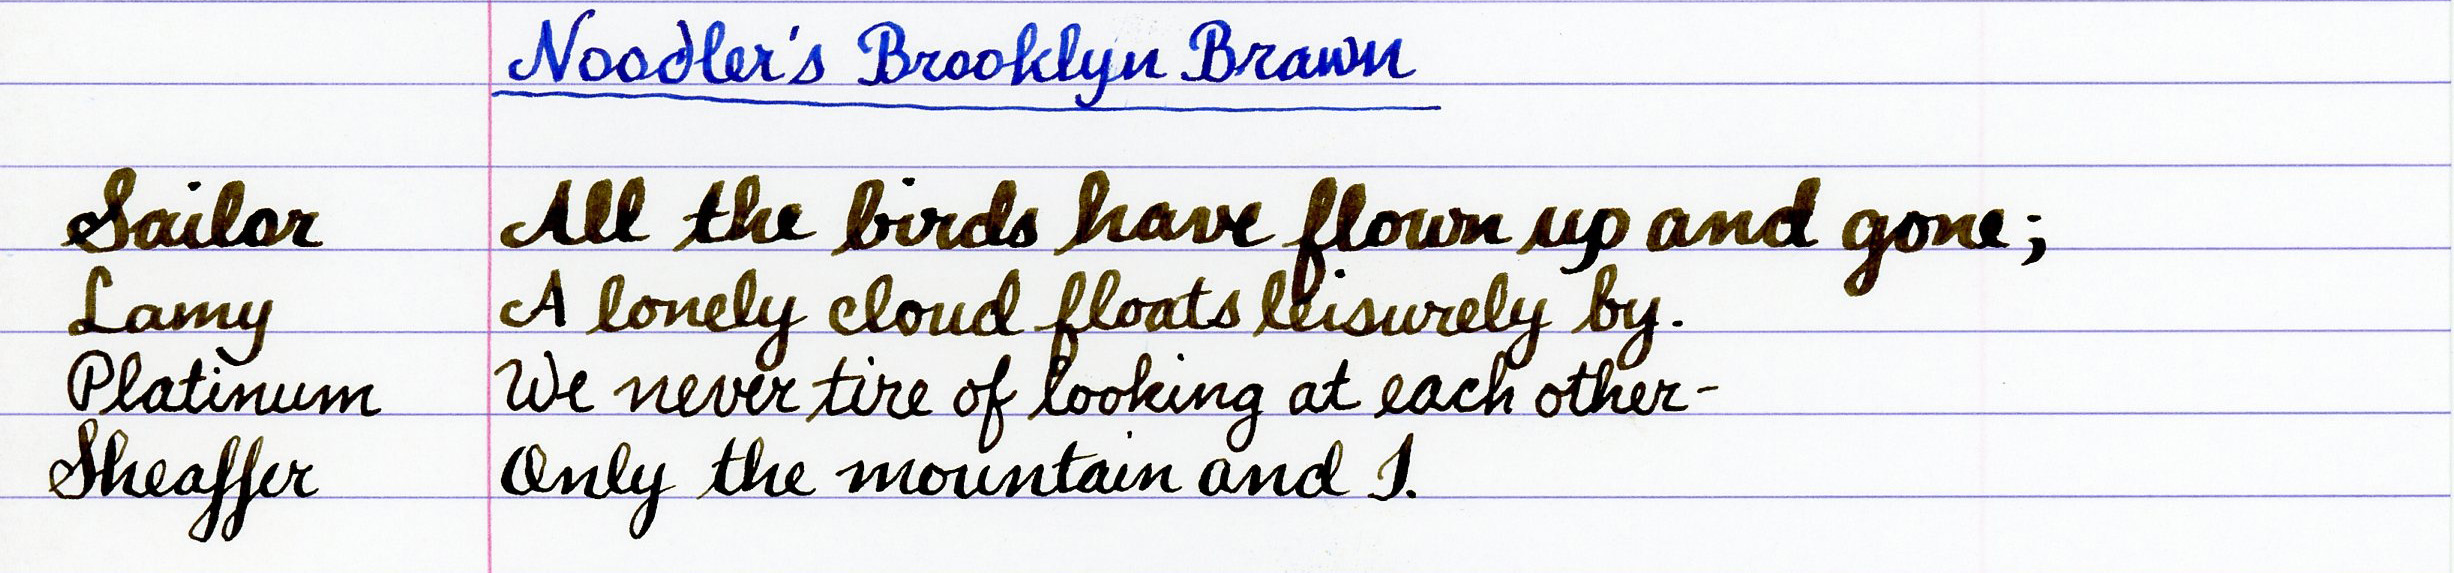 Noodler's Brooklyn Brawn
Sailor All the birds have flown up and gone;
Lamy A lonely cloud floats leisurely by.
Platinum We never tire of looking at each other-
Sheaffer Only the mountain and I.